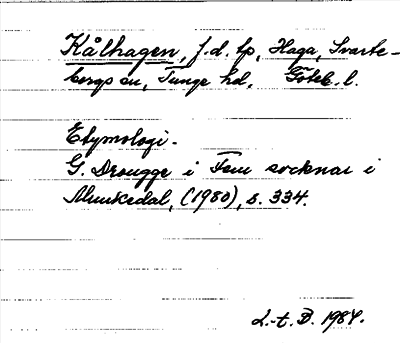 Kålhagen, f.d. tp, Haga, Svarte-
borgs sn, Tunge hd, Göteb. l.
Etymologi.
G. Drougge i Fem socknar i
Munkedal, (1980), s. 334.
L.-t. B. 1984.